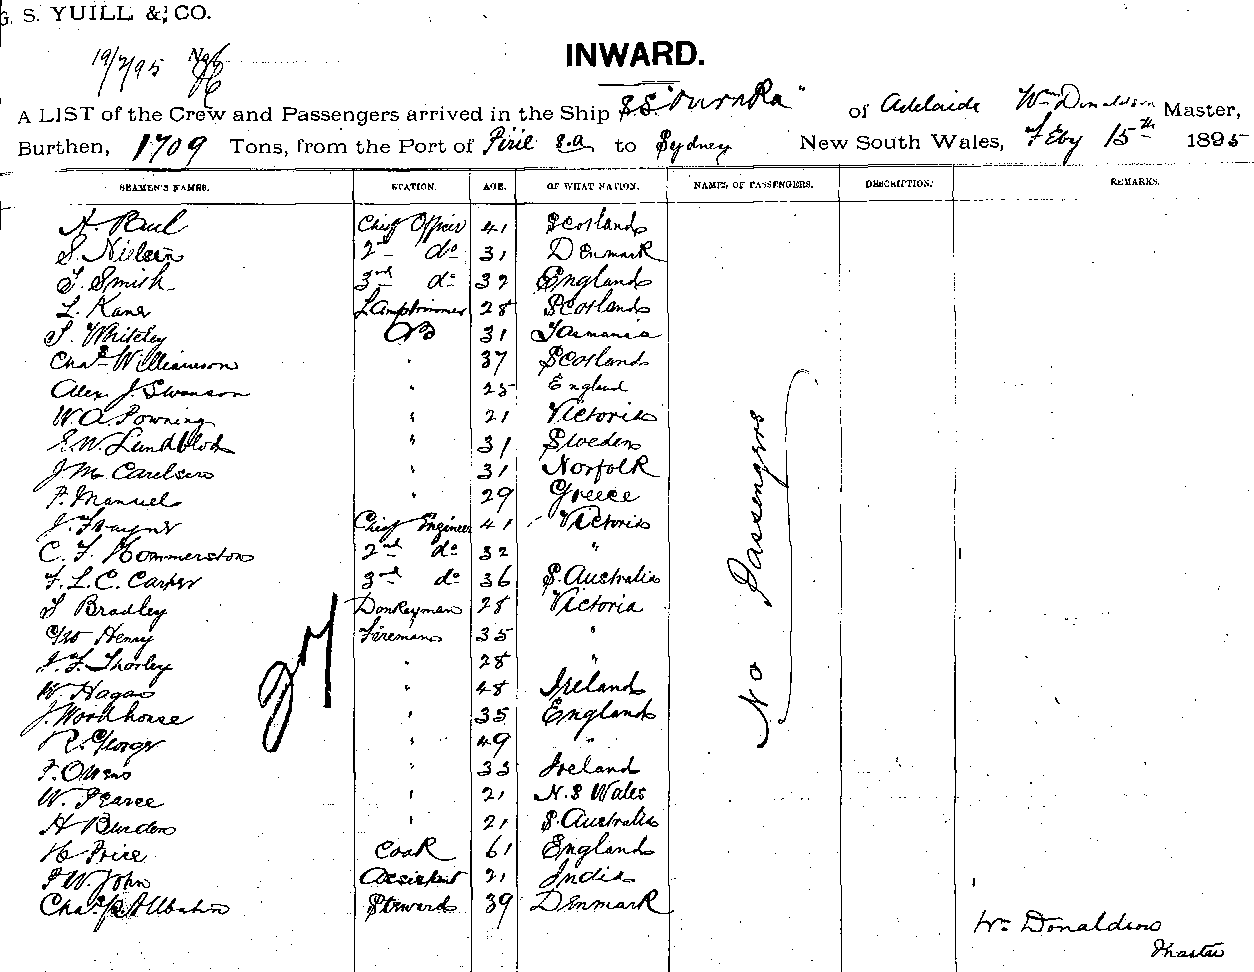 G. S. YUILL & CO.
19/2/95
INWARD.
A LIST of the Crew and Passengers arrived in the Ship S.S. of Adelaide Wm Donaldson Master,
Burthen, 1709 Tons, from the Port of Pirie S.A to Sydney New South Wales, Feby 15th 1895
SEAMEN'S NAMES. STATION. AGE. OF WHAT NATION. NAMES OF PASSENGERS. DESCRIPTION. REMARKS.
A. Paul Chief Officer 41 Scotland
S. Nielsen 2nd do 31 Denmark
T. Smith 3rd do 32 England
L. Kane Lamptrimmer 28 Scotland
S. Whiteley AB 31 Tasmania
Chas Williamson " 37 Scotland
Alex. J. Swanson " 25 England
W. A. Powning " 21 Victoria
E. W. Lundblod " 31 Sweden
J. M. Carelsen " 31 Norfolk
P. Manuel " 29 Greece
J. Chief Engineer 41 Victoria
C. F. Hommerston 2nd do 32 "
F. L. C. Carter 3rd do 36 S. Australia
S Bradley Donkeyman 28 Victoria
Geo Henry Fireman 35 "
J. F. Thorley " 28 "
W Hagan " 48 Ireland
J. Woodhouse " 35 England
R. George " 49 "
F. Owens " 33 Ireland
W. Pearce " 21 N. S Wales
H Burdon " 21 S. Australia
H Price Cook 61 England
P W. John Assistant 21 India
Chas. Steward 39 Denmark
27
No Passengers
Wm Donaldson
Master